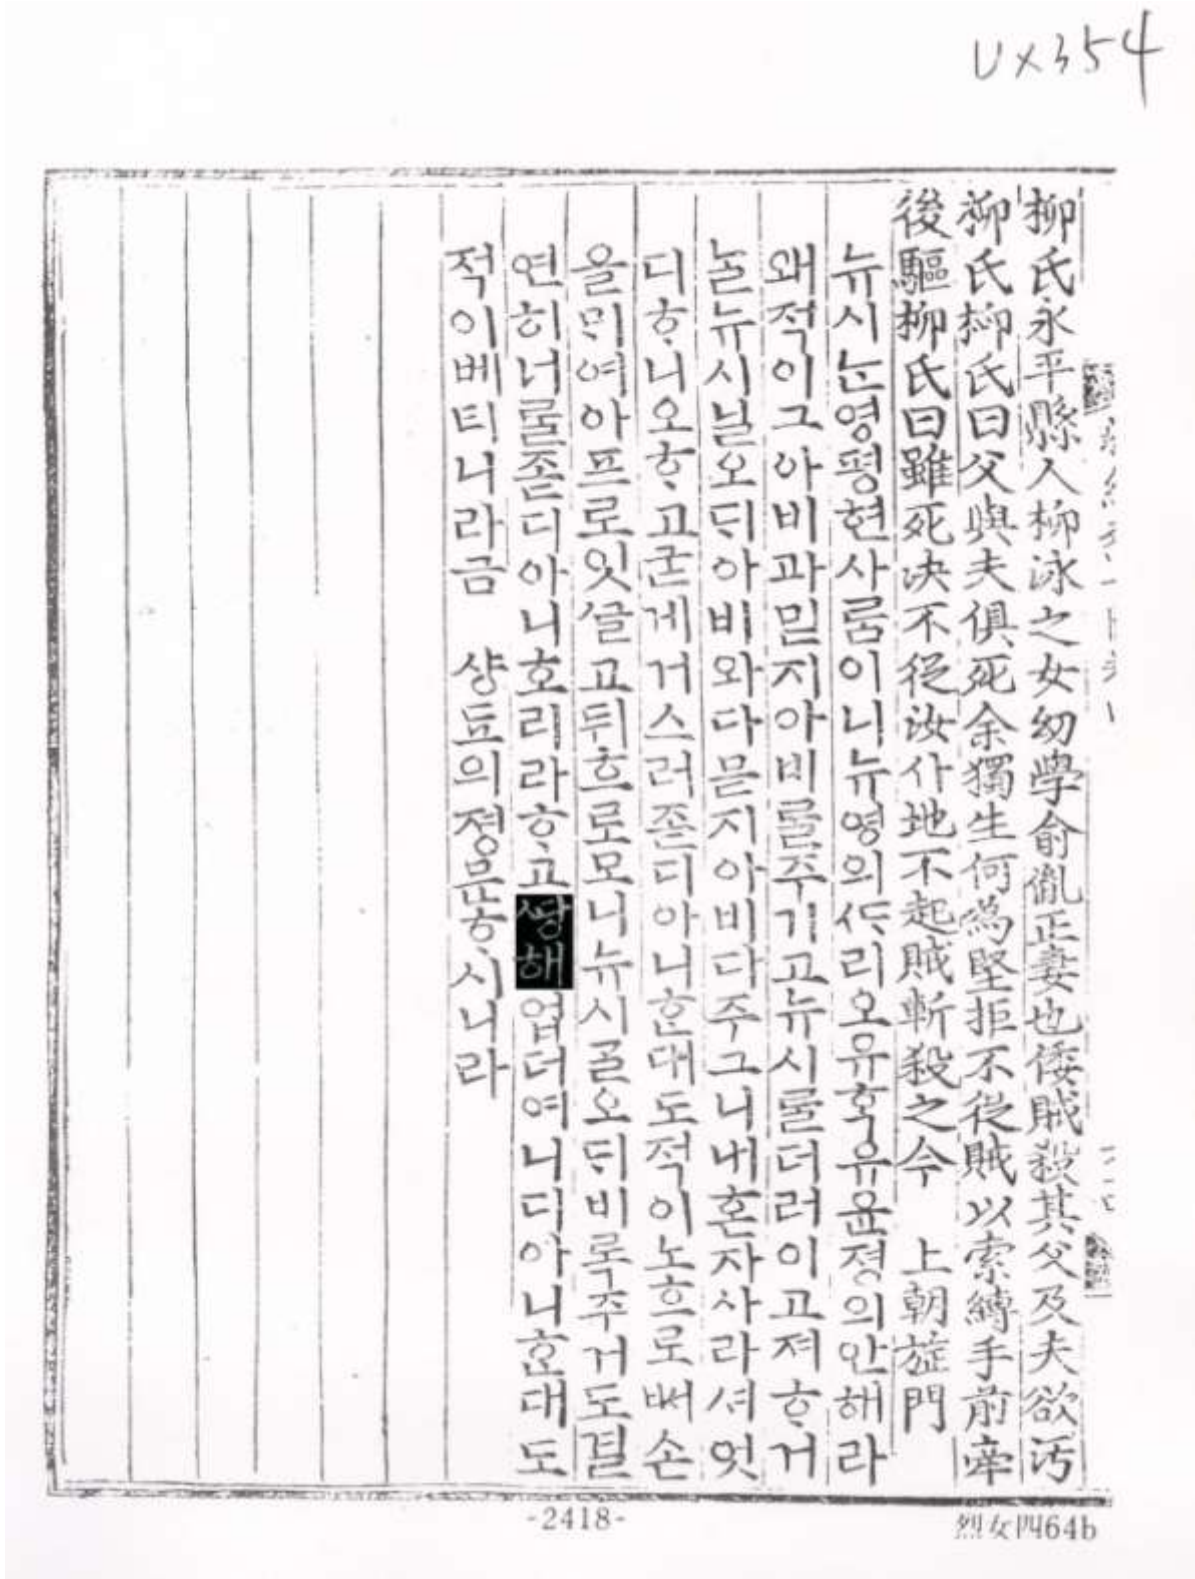 UX354
柳氏永平縣人柳泳之女幼學俞胤正妻也倭賊殺其父及夫欲汚
柳氏柳氏曰父與夫俱死余獨生何爲堅拒不從賊以索縛手前牽
後驅柳氏曰雖死決不從汝仆地不起賊斬殺之今 上朝旌門
뉴시ᄂᆞᆫ영평현사ᄅᆞᆷ이니뉴영의ᄯᆞ리오유ᄒᆞᆨ유윤졍의안해라
왜적이그아비과믿지아비ᄅᆞᆯ주기고뉴시ᄅᆞᆯ더러이고져ᄒᆞ거
ᄂᆞᆯ뉴시닐오ᄃᆡ아비와다믇지아비다주그니내혼자사라셔엇
디ᄒᆞ니오ᄒᆞ고굳게거스러졷디아니ᄒᆞᆫ대도적이노흐로ᄡᅥ손
을ᄆᆡ여아프로잇글고뒤흐로모니뉴시ᄀᆞᆯ오ᄃᆡ비록주거도결
연히너ᄅᆞᆯ졷디아니호리라ᄒᆞ고ᄯᅡᆼ해업더여니디아니ᄒᆞᆫ대도
적이베티니라금 샹됴의졍문ᄒᆞ시니라
-2418-
烈女四64b